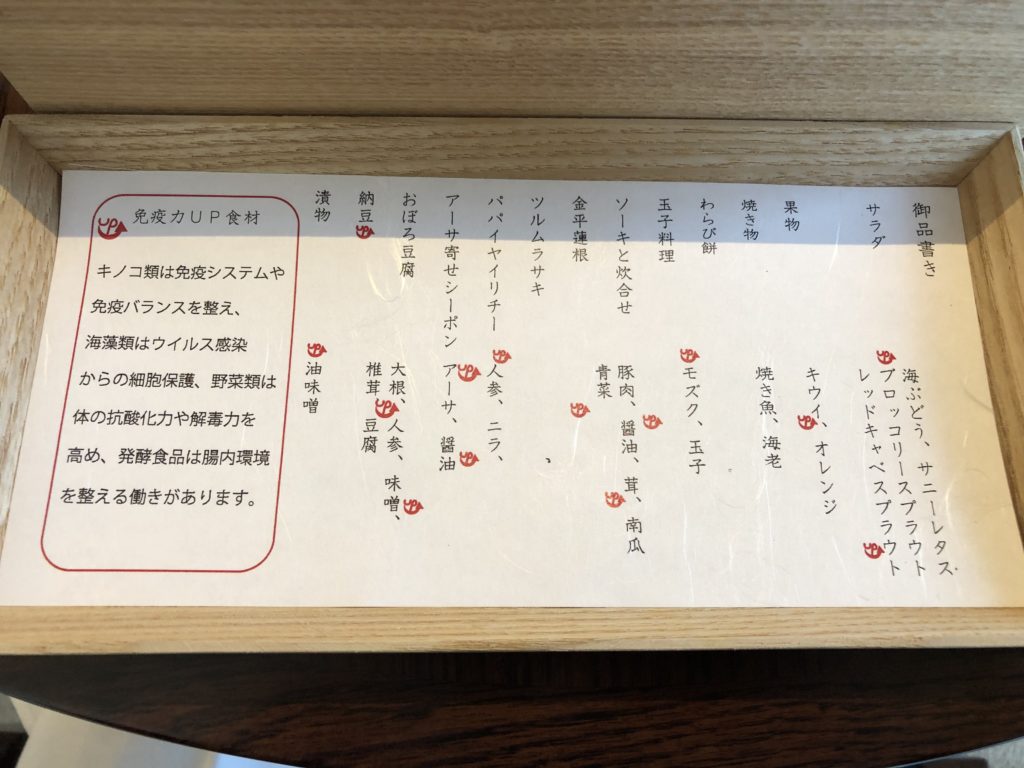 御品書き
サラダ 海ぶどう、サニーレタス
ブロッコリースプラウト
レッドキャベスプラウト
果物 キウイ、オレンジ
焼き物 焼き魚、海老
わらび餅
玉子料理 モズク、玉子
ソーキと炊合せ 豚肉、醤油、茸、南瓜
青菜
金平蓮根
ツルムラサキ
パパイヤイリチー 人参、ニラ、
アーサ寄せシーボン アーサ、醤油
おぼろ豆腐 大根、人参、味噌、
椎茸 豆腐
納豆
漬物 油味噌
UP 免疫力UP食材
キノコ類は免疫システムや
免疫バランスを整え、
海藻類はウイルス感染
からの細胞保護、野菜類は
体の抗酸化力や解毒力を
高め、発酵食品は腸内環境
を整える働きがあります。